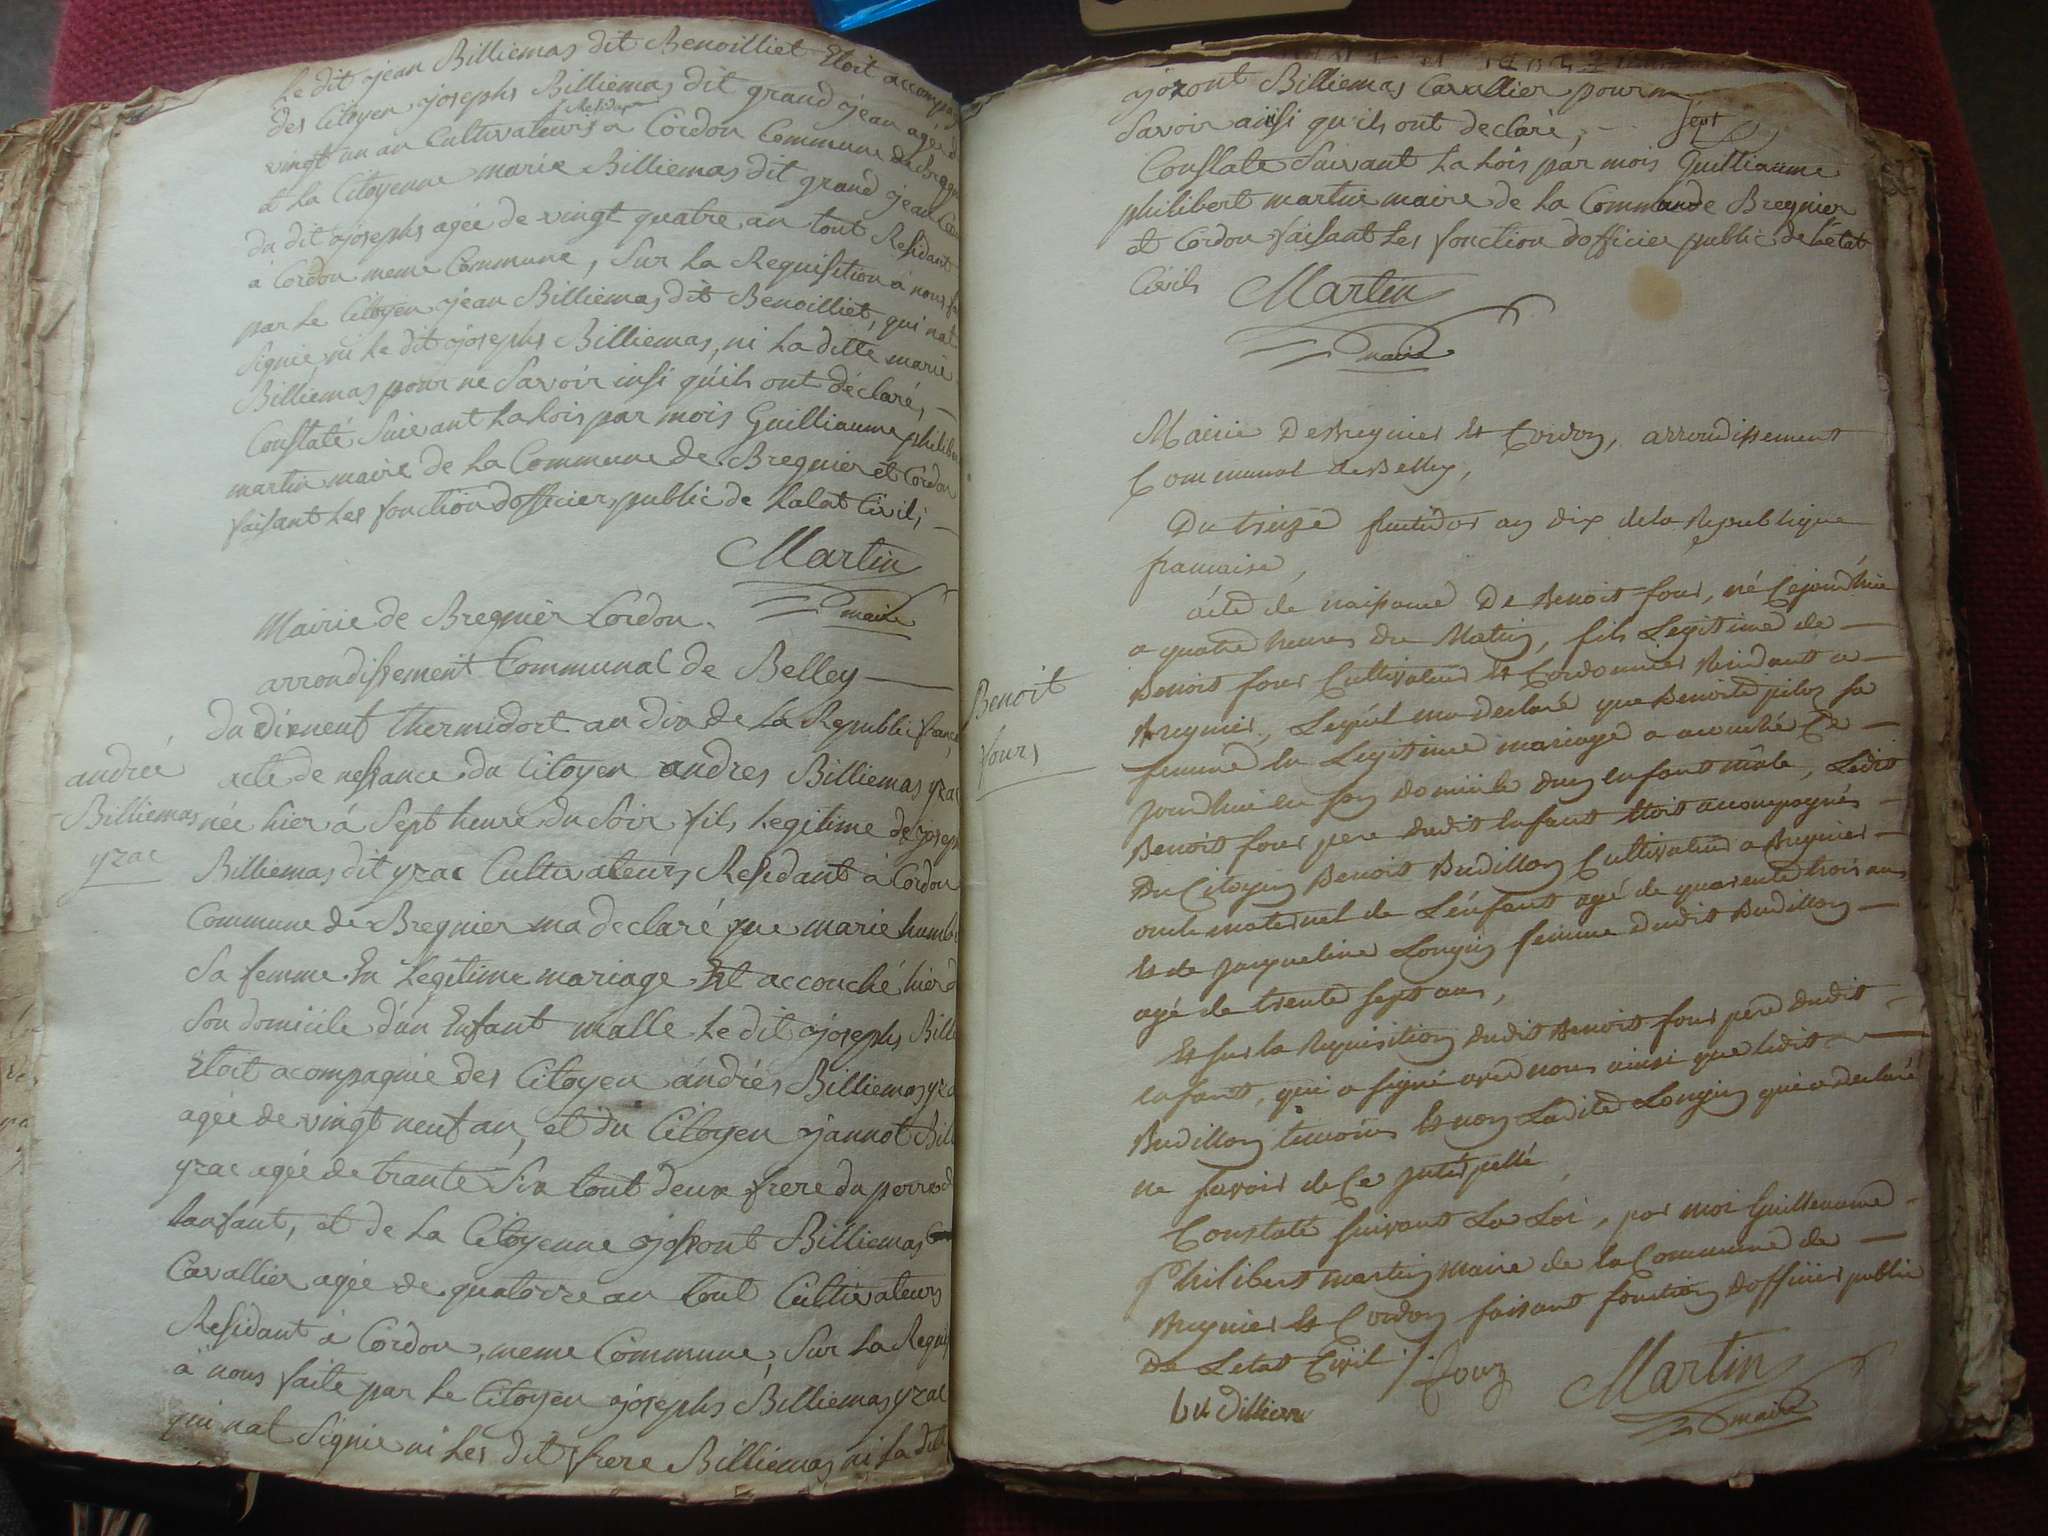 Le dit ojean Billiemas dit Benoilliet Etoit accompa
des Citoyen ojosephs Billiemas dit grand ojean agée d
Residant
vingt un an Cultivateurs a Cordon Commune de Bregni
et La Citoyenne marie Billiemas dit grand ojean
du dit ojosephs agée de vingt quatre an tout Residant
à Cordon meme Commune, Sur La Requisition à nous f
par Le Citoyen ojean Billiemas dit Benoilliet, qui nat
Signie, ni Le dit ojosephs Billiemas, ni La ditte marie
Billiemas pour ne Savoir insi quils ont déclaré,
Constaté Suivant La Lois par mois Guilliaume philibe
martin maire de La Commune de Bregnier et Cordon
faisant Les fonction dofficier public de Lalat Civil;
Martin
maire
Mairie de Bregnier Cordon.
arrondissement Communal de Belley
Du dixneuf thermidort an dix de La Republic france
andrée
Billiemas
yzac
acte de nessance du Citoyen andres Billiemas yzac
née hier à Sept heure du Soir fils Legitime de ojosep
Billiemas dit yzac Cultivateurs Residant à Cordon
Commune de Bregnier ma declaré que marie humb
Sa femme En Legitime mariage Et accouché hier d
Son domicile d'un Enfant malle Le dit ojosephs Bille
Etoit acompagnie des Citoyen andrés Billiemas yza
agée de vingt neuf an, et du Citoyen ojannot Bill
yzac agée de trante Six tout deux frere du perre d
Lanfant, et de La Citoyenne ojosront Billiemas
Cavallier agée de quatorze an tout Cultivateurs
Residant à Cordon, meme Commune, Sur La Requis
à nous faite par Le Citoyen ojosephs Billiemas yzac
qui nat Signie ni Les dit frere Billiemas ni La ditte
ojozont Billiemas Cavallier pour
Savoir ainsi quils ont declaré,
Sept
Constate Suivant La Lois par mois Guilliaume
philibert martin maire de La Commande Bregnier
et Cordon faisant Les fonction dofficier public de Letat
Civils
Martin
maire
Mairie De Bregnier Et Cordon, arrondissement
Communal de Belley,
Du treize fructidor an dix de la Republique
francaise,
Benoit
fours
acte de naissance De Benoit four, né Cejourdhui
a quatre heures Du Matin, fils Legitime de
Benoit four Cultivateur Et Cordonnier Residant a
Bregnier, Lequel ma declaré que Benoite pilos sa
femme En Legitime mariage a accouché Ce
jourdhui en son domicile dun Enfant mâle, Ledit
Benoit four pere dudit Enfant Etoit accompagnés
Du Citoyen Benoit Budillon Cultivateur a Bregnier
oncle maternel de L'enfant agé de quarente trois ans
Et de jacqueline Longin femme dudit Budillon
agé de trente sept ans,
Et sur la Requisition dudit Benoit four pere dudit
Enfant, qui a signé avec nous ainsi que ledit
Budillon temoins Et non Ladite Longin qui a declaré
ne savoir de Ce jnterpellé
Constaté suivant La Loi, par moi Guilleaume
Philibert martin Maire de la Commune de
Bregnier Et Cordon faisant fonction Dofficier public
De Letat Civil
fourz
Martin
maire
budillion